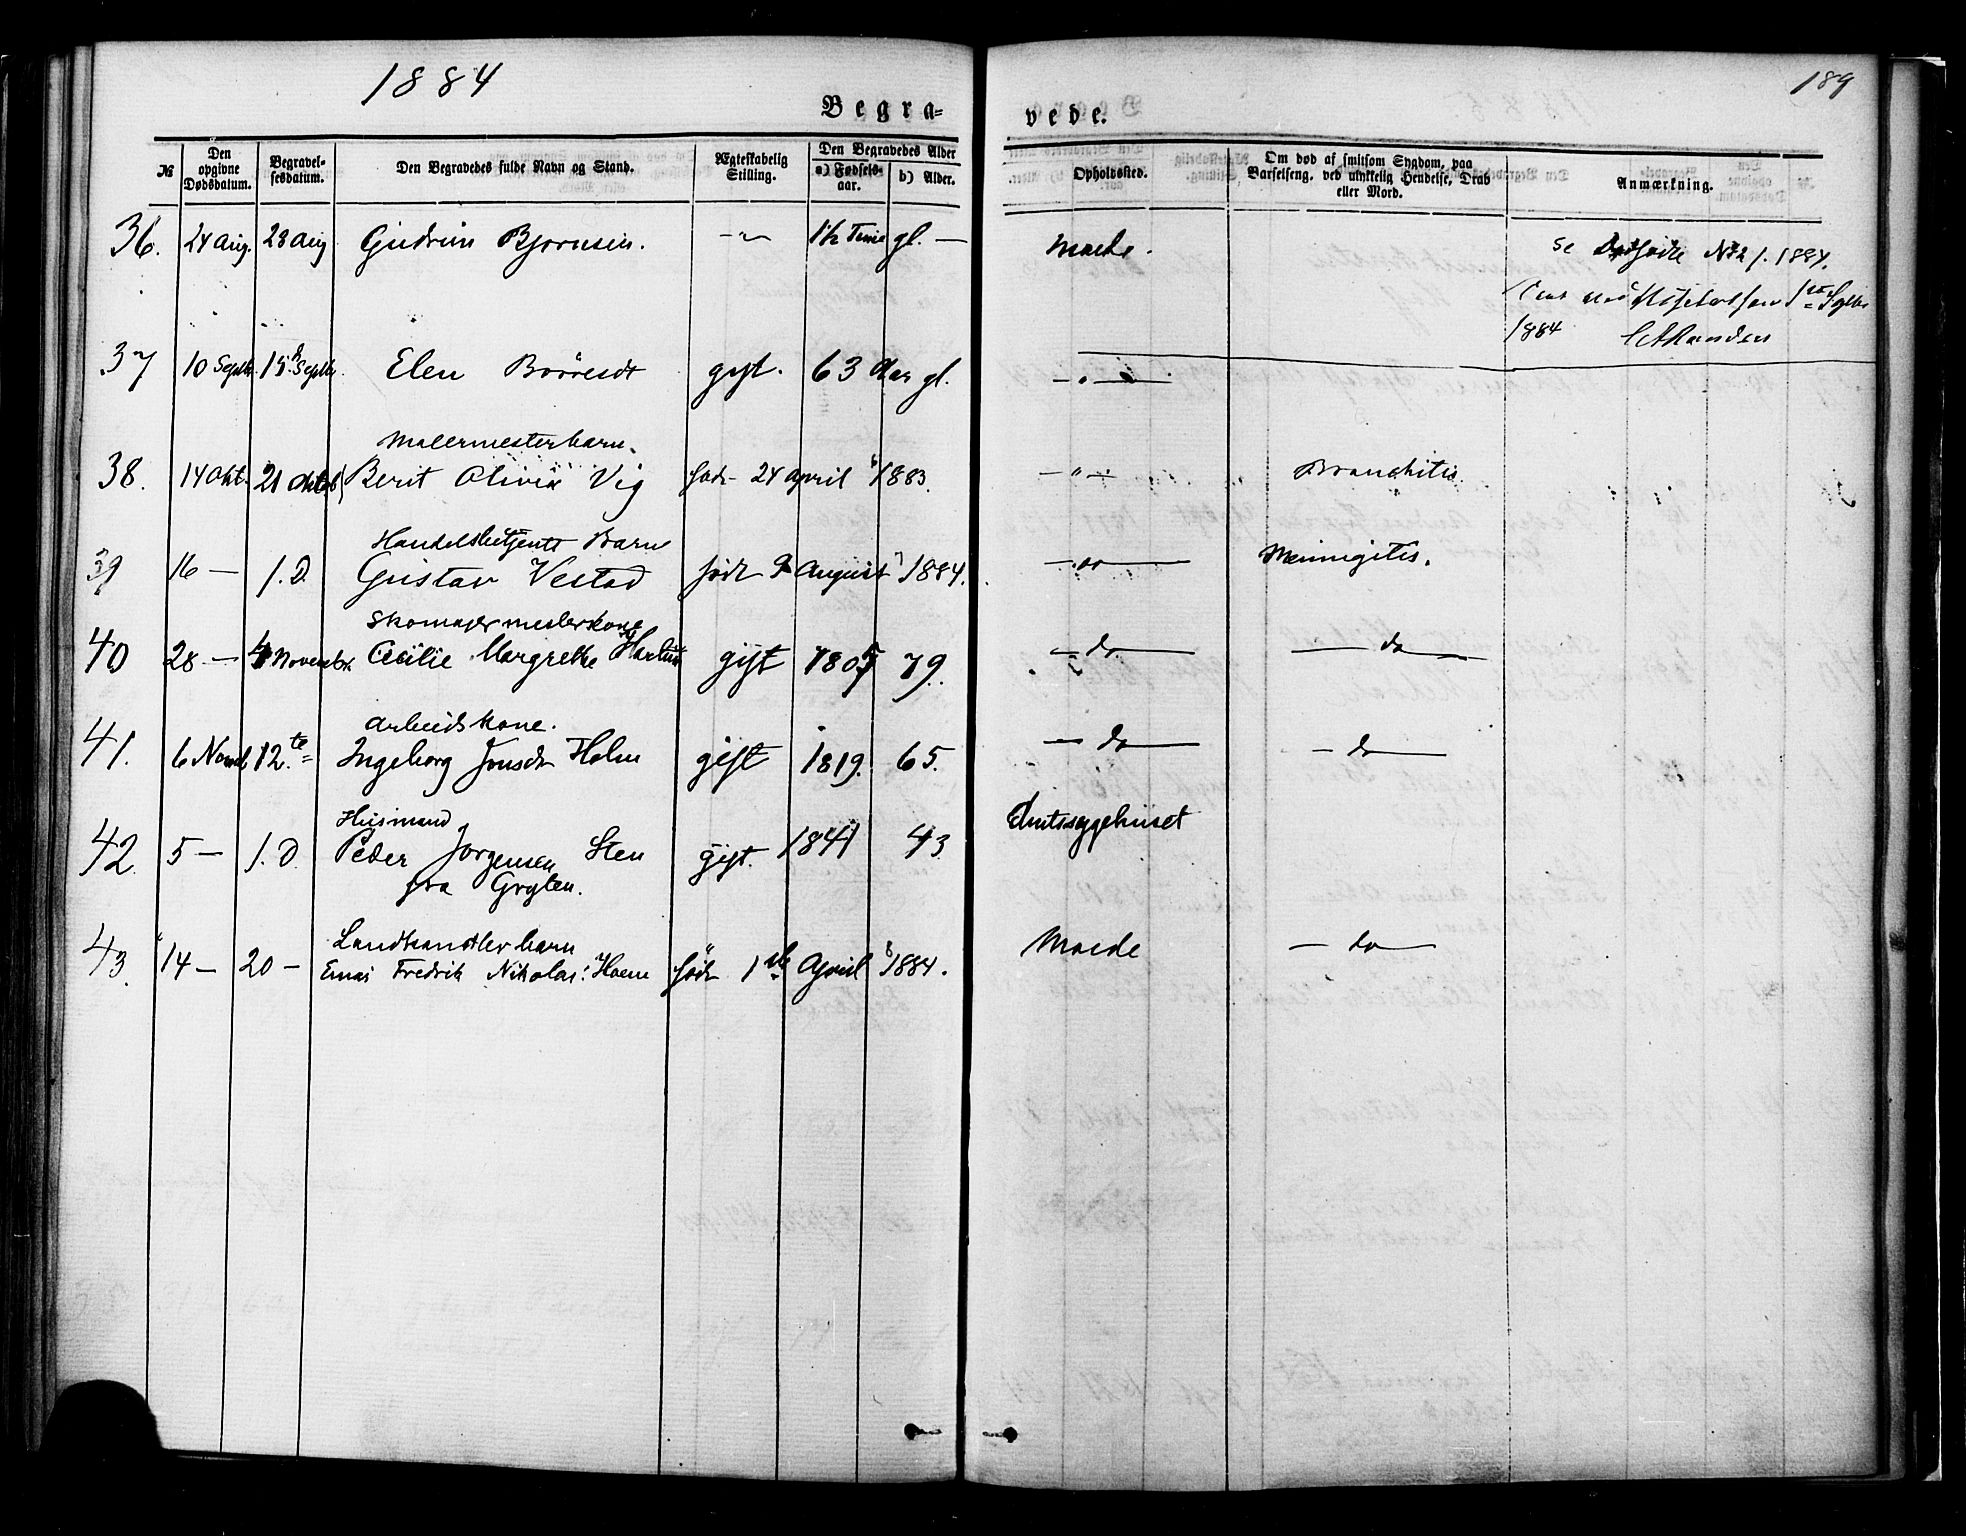 1884
189
Begra=
vede.
№
Den opgivne Dødsdatum.
Begravel-sesdatum.
Den Begravedes fulde Navn og Stand.
Ægteskabelig Stilling.
Den Begravedes Alder
a) Fødsels-aar.
b) Alder.
Opholdssted.
Om død af smitsom Sygdom, paa Barselseng, ved ulykkelig Hendelse, Drab eller Mord.
Anmærkning.
36. 24 Aug. 28 Aug Gudrun Bjornsen. -"- 1½ Time gl. — Molde. se Dødfødte No 2/. 1884.
1ste Septbr
1884
37 10 Septbr. 15. Septbr Elen gift. 63 Aar gl. —"—
Malermesterbarn.
38. 14 Okt. 21 Oktob Berit Olivia Vig født 24 April 1883. —"— Bronchitis.
Handelsbetjents Barn
39 16 — 1. D. Gustav Vestad født 9 August 1884. —"— Meningitis.
Skomagermesterkone
40 28 — 4 Novembr. Cecilie Margrethe gift 1805 79. — do — — do —
Arbeidskone.
41. 6 Novb 12.te Ingeborg Jonsdt Holm gift 1819. 65. — do — — do —
Husmand
42. 5 — 1. D. Peder Jørgensen Sten gift. 1841 43 Amtssygehuset
fra Gryten.
Landhandler barn
43. 14 — 20 — Fredrik Nikolai Hoem født 1ste April 1884. Molde — do —